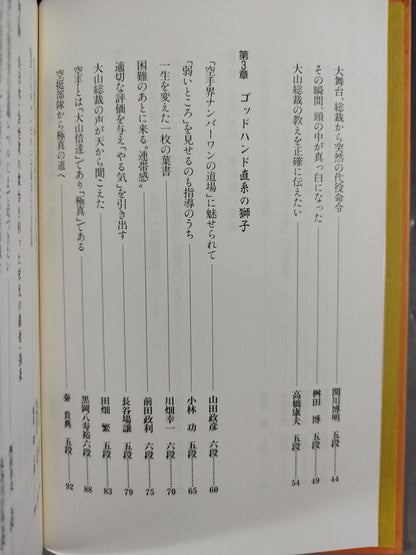 大舞台、総裁から突然の代役命令 関川博明 五段 44
その瞬間、頭の中が真っ白になった 桝田 博 五段 49
大山総裁の教えを正確に伝えたい 高橋康夫 五段 54
第3章 ゴッドハンド直系の獅子
「空手界ナンバーワンの道場」に魅せられて 山田政彦 六段 60
「弱いところ」を見せるのも指導のうち 小林 功 五段 65
一生を変えた一枚の葉書 川畑幸一 六段 70
困難のあとに来る“連帯感” 前田政利 六段 75
適切な評価を与え「やる気」を引き出す 長谷場譲 五段 79
大山総裁の声が天から聞こえた 田畑 繁 五段 83
空手とは「大山倍達」であり「極真」である 黒岡八寿裕 六段 88
空挺部隊から極真の道へ 秦 貴典 五段 92